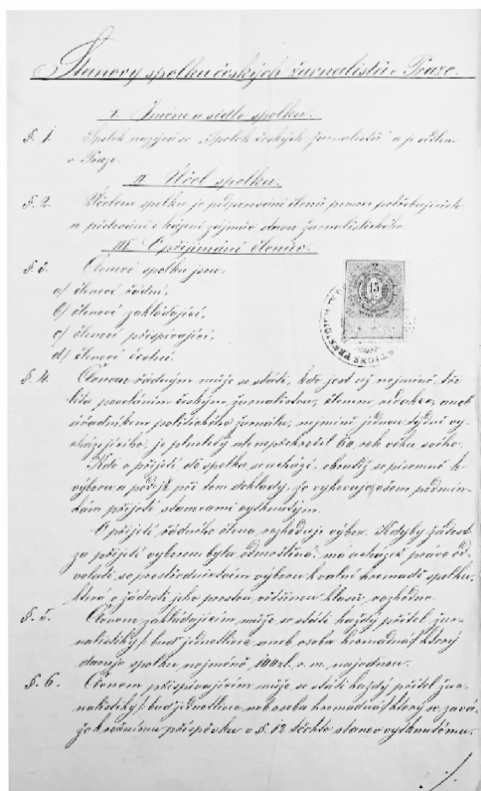 Stanovy spolku českých žurnalistů v Praze.
I. Jméno a sídlo spolku.
§. 1. Spolek nazývá se „Spolek českých žurnalistů“ a je sídlem
v Praze.
II. Účel spolku.
§. 2. Účelem spolku je podporování členů pomoci potřebujících
a pěstování i hájení zájmů stavu žurnalistického.
III. O přijímání členův.
§ 3. Členové spolku jsou:
a/ členové řádní,
b/ členové zakládající,
c/ členové přispívající,
d/ členové čestní.
15
§. 4. Členem řádným může se státi, kdo jest již nejméně tři
léta povoláním českým žurnalistou, členem redakce, aneb
úředníkem politického žurnálu, nejméně jednou týdně vy-
cházejícího, je plnoletý ale nepřekročil 60. rok věku svého.
Kdo o přijetí do spolku se uchází, obrátiž se písemně k
výboru a při tom doklady, že vyhovuje všem podmín-
kám přijetí stanovami vytknutým.
O přijetí řádného člena rozhoduje výbor. Kdyby žádost
za přijetí výborem byla odmítnuta, má uchazeč právo od-
volati se prostřednictvím výboru k valné hromadě spolku,
která o žádosti jeho prostou většinou hlasů rozhodne.
§. 5. Členem zakládajícím může se státi každý přítel žur-
nalistiky /: buď jednotlivec aneb osoba hromadná :/ který
daruje spolku nejméně 100 zl. r. m. najednou.
§. 6. Členem přispívajícím může se státi každý přítel žur-
nalistiky /: buď jednotlivec neb osoba hromadná :/ který se zavá-
že k ročnímu příspěvku v §. 12 těchto stanov vytknutému.